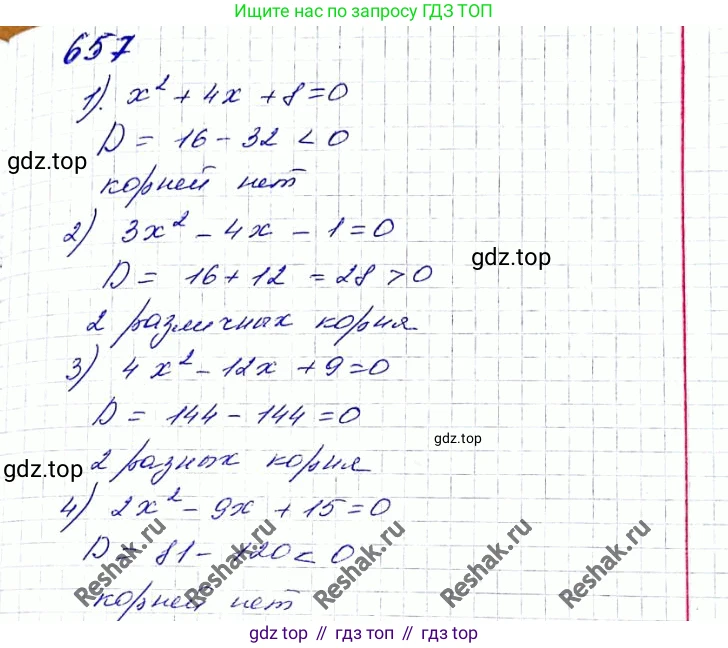 Ищите нас по запросу ГДЗ ТОП
657
1). x² + 4x + 8 = 0
D = 16 - 32 < 0
gdz.top
корней нет
2) 3x² - 4x - 1 = 0
gdz.top
D = 16 + 12 = 28 > 0
2 различных корня
3) 4x² - 12x + 9 = 0
D = 144 - 144 = 0
gdz.top
2 разных корня
gdz.top
4) 2x² - 9x + 15 = 0
D = 81 - 120 < 0
корней нет
Reshak.ru Reshak.ru Reshak.ru Reshak.ru Reshak.ru
gdz top // гдз топ // gdz.top // гдз.топ